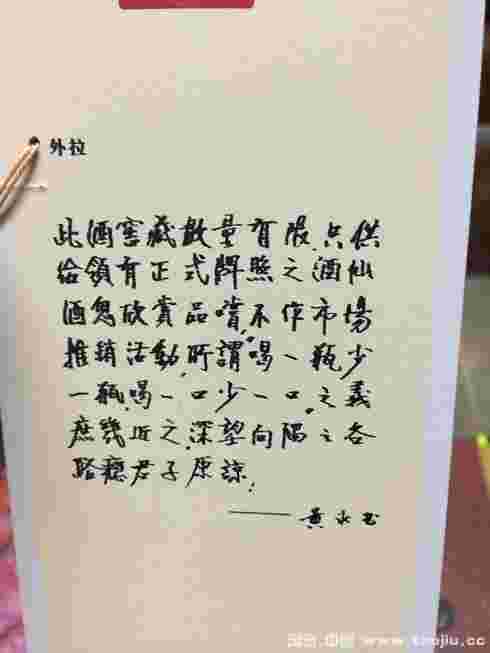 外拉
此酒窖藏數量有限,只供
給領有正式牌照之酒仙
酒鬼欣賞品嚐,不作市場
推銷活動,所謂喝一瓶少
一瓶,喝一口少一口,之義
庶幾近之,深望向隅之各
路癮君子原諒;
——黄永玉
www.thojiu.cc